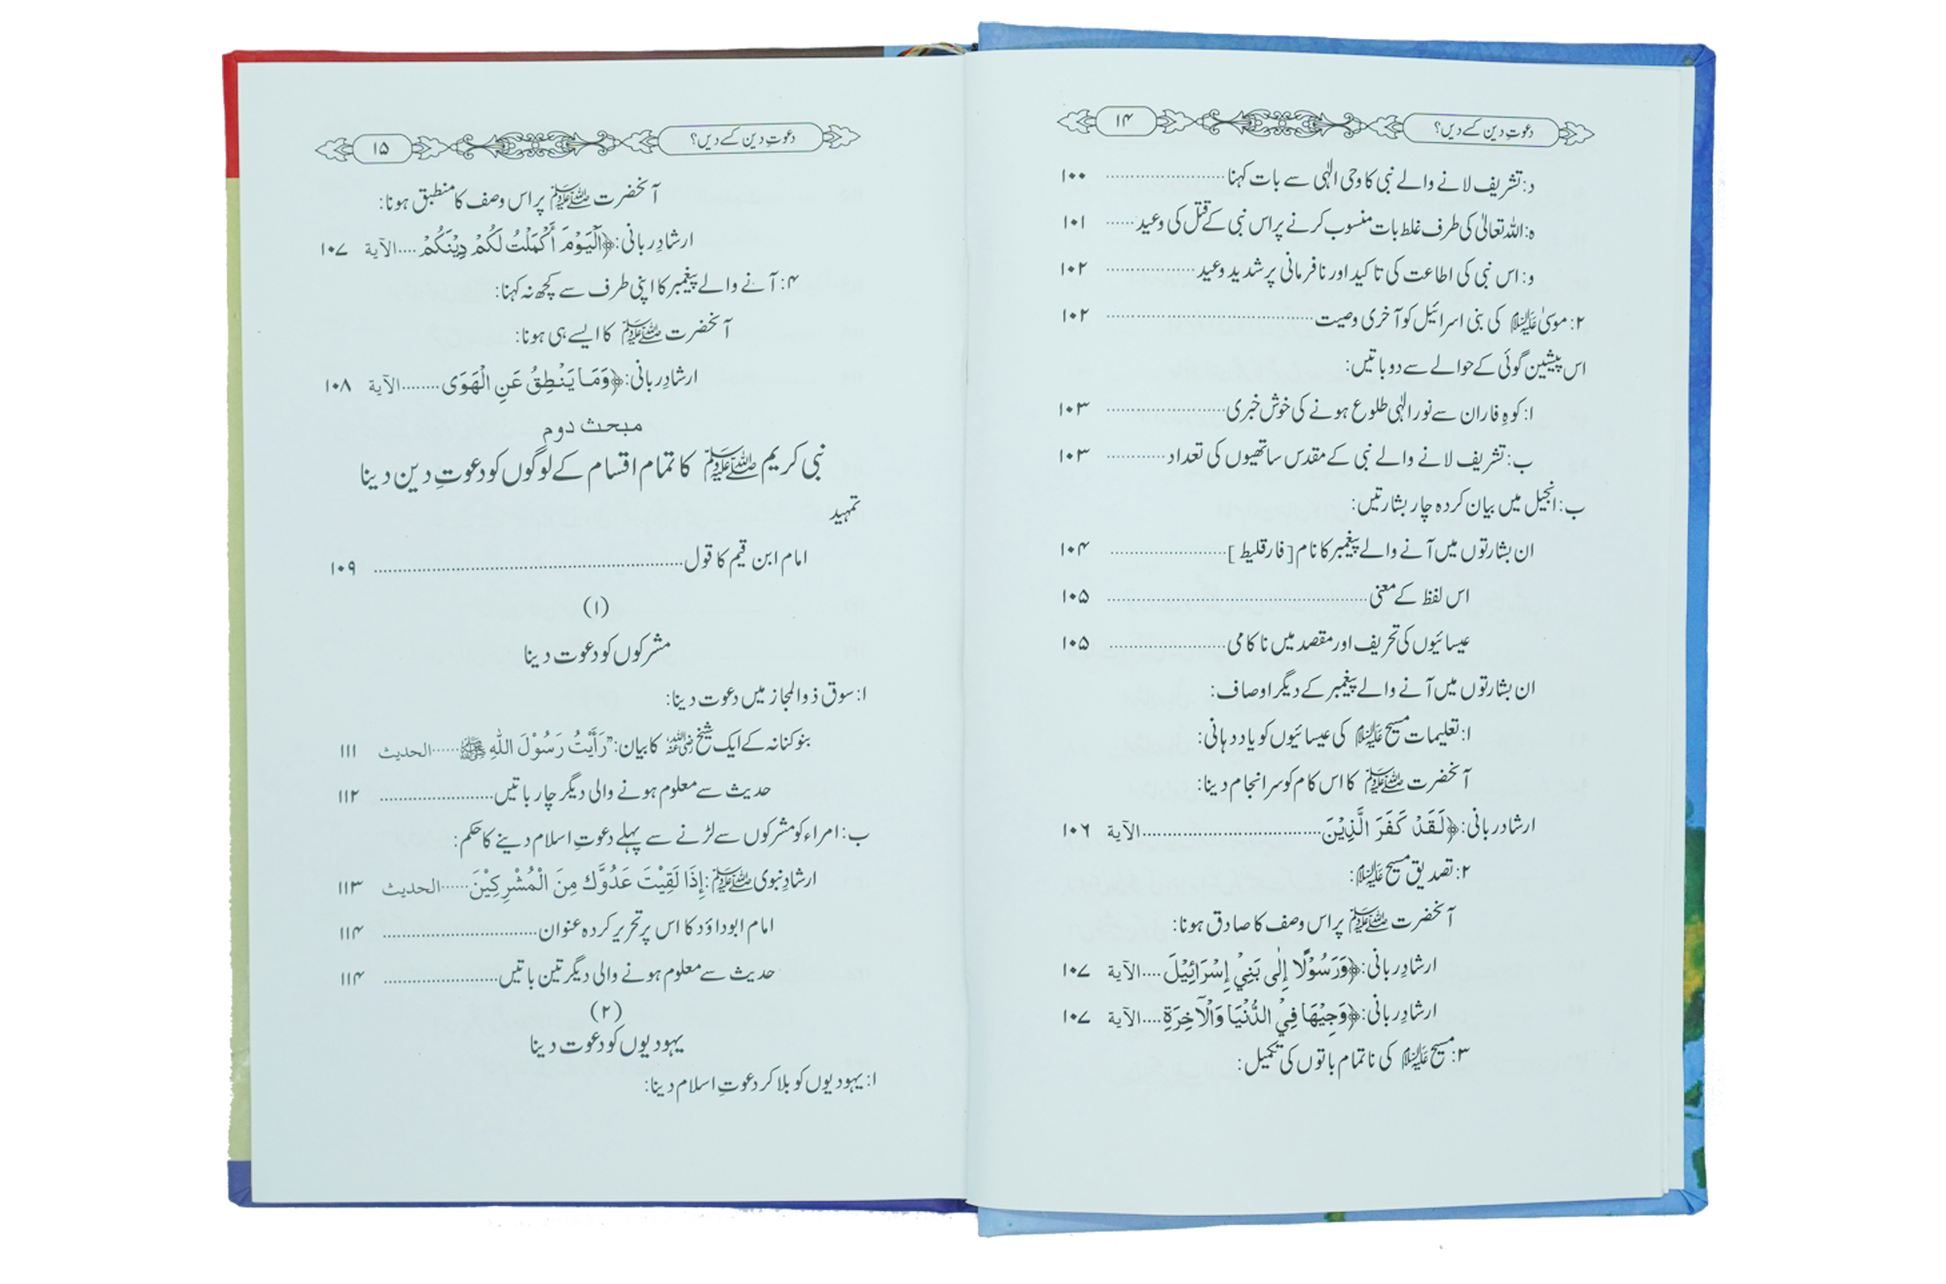 دعوتِ دین کسے دیں؟ ۱۴
د: تشریف لانے والے نبی کا وحی الٰہی سے بات کہنا ........................ ۱۰۰
ہ: اللہ تعالیٰ کی طرف غلط بات منسوب کرنے پر اس نبی کے قتل کی وعید ...... ۱۰۱
و: اس نبی کی اطاعت کی تاکید اور نافرمانی پر شدید وعید .................. ۱۰۲
۲: موسیٰ علیہ السلام کی بنی اسرائیل کو آخری وصیت ........................ ۱۰۲
اس پیشین گوئی کے حوالے سے دو باتیں:
ا: کوہِ فاران سے نور الٰہی طلوع ہونے کی خوش خبری ........................ ۱۰۳
ب: تشریف لانے والے نبی کے مقدس ساتھیوں کی تعداد ............ ۱۰۳
ب: انجیل میں بیان کردہ چار بشارتیں:
ان بشارتوں میں آنے والے پیغمبر کا نام [فارقلیط] ........................ ۱۰۴
اس لفظ کے معنی ........................ ۱۰۵
عیسائیوں کی تحریف اور مقصد میں ناکامی ........................ ۱۰۵
ان بشارتوں میں آنے والے پیغمبر کے دیگر اوصاف:
ا: تعلیمات مسیح علیہ السلام کی عیسائیوں کو یاد دہانی:
آنحضرت ﷺ کا اس کام کو سرانجام دینا:
ارشاد ربانی: ﴿لَقَدْ كَفَرَ الَّذِيْنَ ........................ الآية ۱۰۶
۲: تصدیق مسیح علیہ السلام:
آنحضرت ﷺ پر اس وصف کا صادق ہونا:
ارشادِ ربانی: ﴿وَرَسُوْلًا إِلٰى بَنِيْ إِسْرَائِيْلَ .... الآية ۱۰۷
ارشادِ ربانی: ﴿وَجِيْهًا فِيْ الدُّنْيَا وَالْآخِرَةِ .... الآية ۱۰۷
۳: مسیح علیہ السلام کی ناتمام باتوں کی تکمیل:
دعوتِ دین کسے دیں؟ ۱۵
آنحضرت ﷺ پر اس وصف کا منطبق ہونا:
ارشادِ ربانی: ﴿اَلْيَوْمَ أَكْمَلْتُ لَكُمْ دِيْنَكُمْ .... الآية ۱۰۷
۴: آنے والے پیغمبر کا اپنی طرف سے کچھ نہ کہنا:
آنحضرت ﷺ کا ایسے ہی ہونا:
ارشادِ ربانی: ﴿وَمَا يَنْطِقُ عَنِ الْهَوَى ........ الآية ۱۰۸
مبحث دوم
نبی کریم ﷺ کا تمام اقسام کے لوگوں کو دعوتِ دین دینا
تمہید
امام ابن قیم کا قول ........................ ۱۰۹
(۱)
مشرکوں کو دعوت دینا
ا: سوق ذوالمجاز میں دعوت دینا:
بنو کنانہ کے ایک شیخ رضی اللہ عنہ کا بیان: ”رَأَيْتُ رَسُوْلَ اللهِ ﷺ ...... الحديث ۱۱۱
حدیث سے معلوم ہونے والی دیگر چار باتیں ........................ ۱۱۲
ب: امراء کو مشرکوں سے لڑنے سے پہلے دعوتِ اسلام دینے کا حکم:
ارشادِ نبوی ﷺ: إِذَا لَقِيْتَ عَدُوَّكَ مِنَ الْمُشْرِكِيْنَ ...... الحديث ۱۱۳
امام ابوداؤد کا اس پر تحریر کردہ عنوان ........................ ۱۱۴
حدیث سے معلوم ہونے والی دیگر تین باتیں ........................ ۱۱۴
(۲)
یہودیوں کو دعوت دینا
ا: یہودیوں کو بلا کر دعوتِ اسلام دینا: